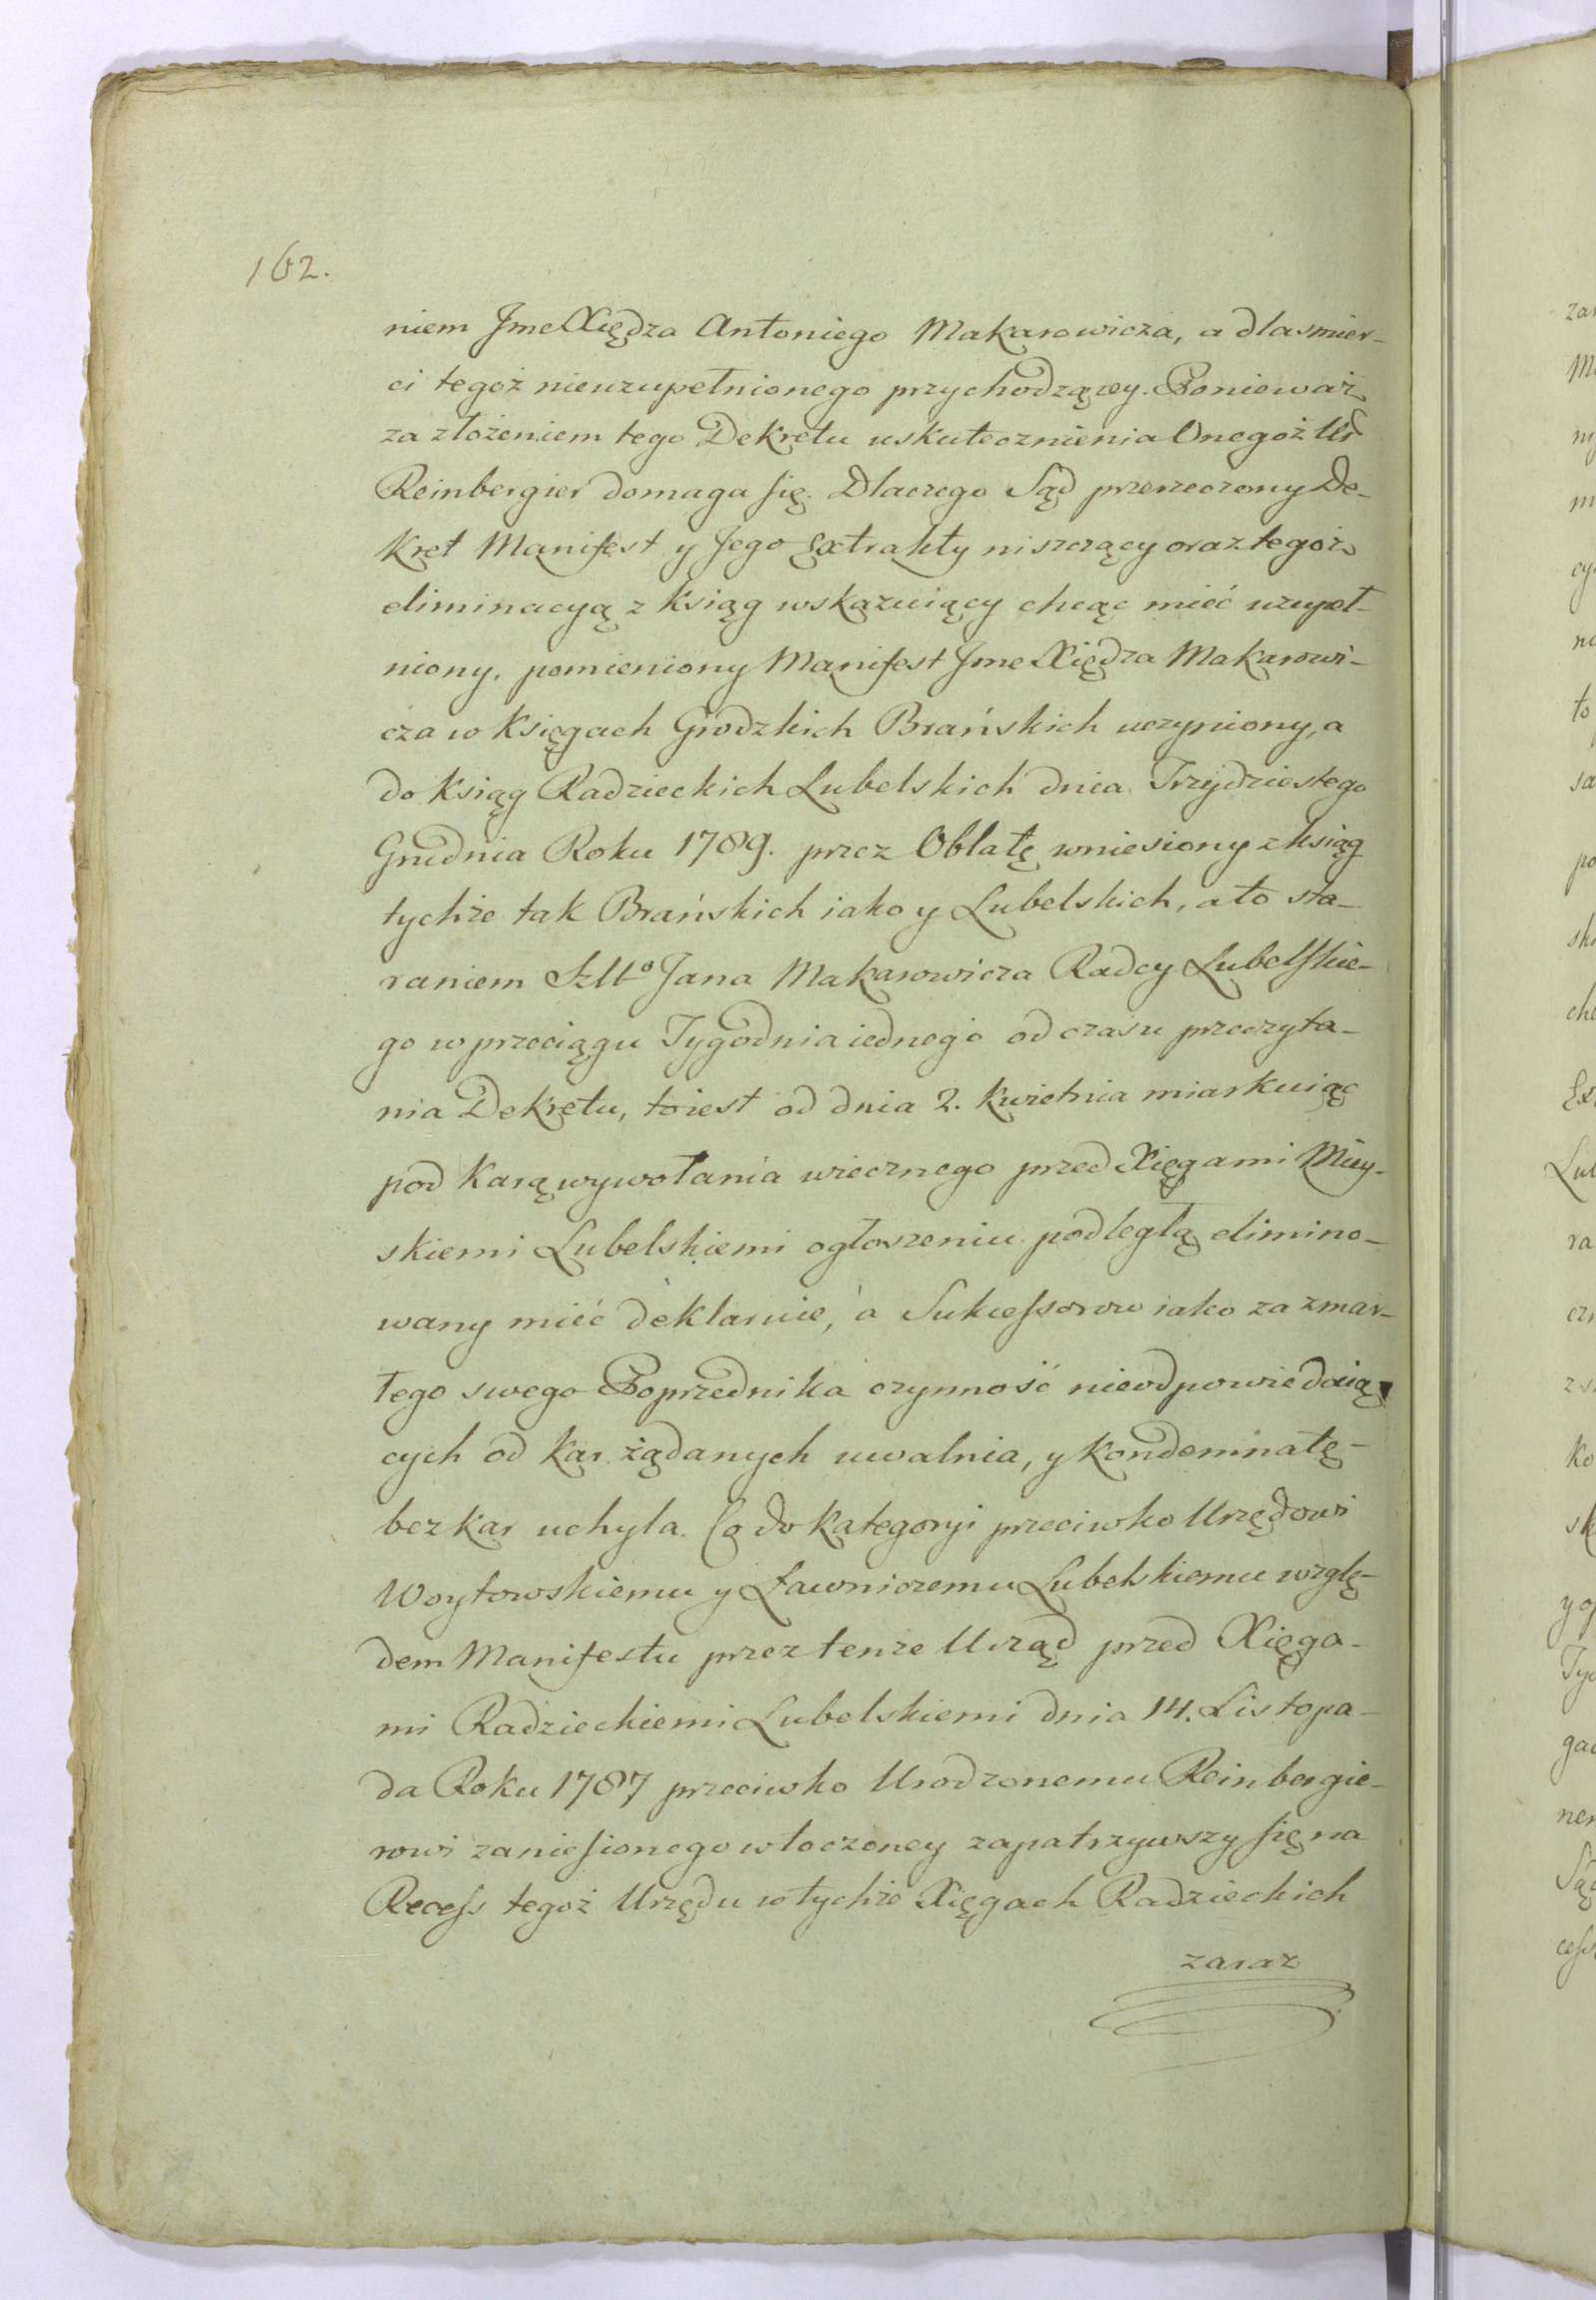 162.
niem Jme Xiędza Antoniego Makarowicza, a dla smier-
ci tegoż nieuzupełnionego przychodzący. Ponieważ
za złożeniem tego Dekretu uskutecznienia Onegoż Ur
Reinbergier domaga się. Dlaczego Sąd przerzeczony De-
kret Manifest y Jego Extrakty niszczący oraz tegoż
eliminacyą z Ksiąg wskazuiący chcąc mieć uzupeł-
niony, pomieniony Manifest Jme Xiędza Makarowi-
cza w Księgach Grodzkich Brańskich uczyniony, a
do Ksiąg Radzieckich Lubelskich dnia Trzydziestego
Grudnia Roku 1789. przez Oblatę wniesiony z ksiąg
tychże tak Brańskich iako y Lubelskich, a to sta-
raniem Szltº Jana Makarowicza Radcy Lubelskie-
go w przeciągu Tygodnia iednego od czasu przeczyta-
nia Dekretu, to iest od dnia 2. Kwietnia miarkuiąc
pod Karą wywołania wiecznego przed Xięgami Miey-
skiemi Lubelskiemi ogłoszeniu podległą elimino-
wany mieć deklaruie, a Sukcessorow iako za zmar-
łego swego Poprzednika czynność nieodpowiedaią
cych od kar żądanych uwalnia, y kondemnatę
bez kar uchyla. Co do kategoryi przeciwko Urzędowi
Woytowskiemu y Ławniczemu Lubelskiemu wzglę-
dem Manifestu przez tenże Urząd przed Xięga-
mi Radzieckiemi Lubelskiemi dnia 14. Listopa-
da Roku 1787 przeciwko Urodzonemu Reinbergie-
rowi zaniesionego wtoczoney zapatrzywszy się na
Recess tegoż Urzędu w tychże Xięgach Radzieckich
zaraz